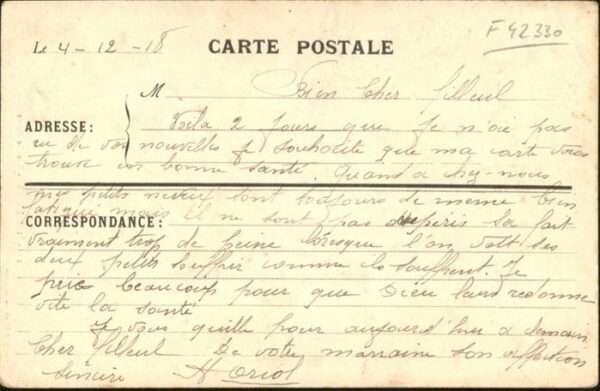 F 42330
Le 4-12-18
CARTE POSTALE
M Bien Cher filleul
ADRESSE:
Voila 2 jours que Je n'aie pas
eu de vos nouvelles Je souhaite que ma carte vous
trouve en bonne santé. Quand a chez-nous
mes petits neveux sont toujours de meme bien
mais il ne sont pas Sa fait
CORRESPONDANCE:
vraiment trop de peine lorsque l'on voit ses
deux petits souffrir comme ils souffrent. Je
prie beaucoup pour que Dieu leurs redonne
vite la santé
Je vous quitte pour aujourd'hui a demain
Cher filleul De votre marraine son affection
sincère A Oriol